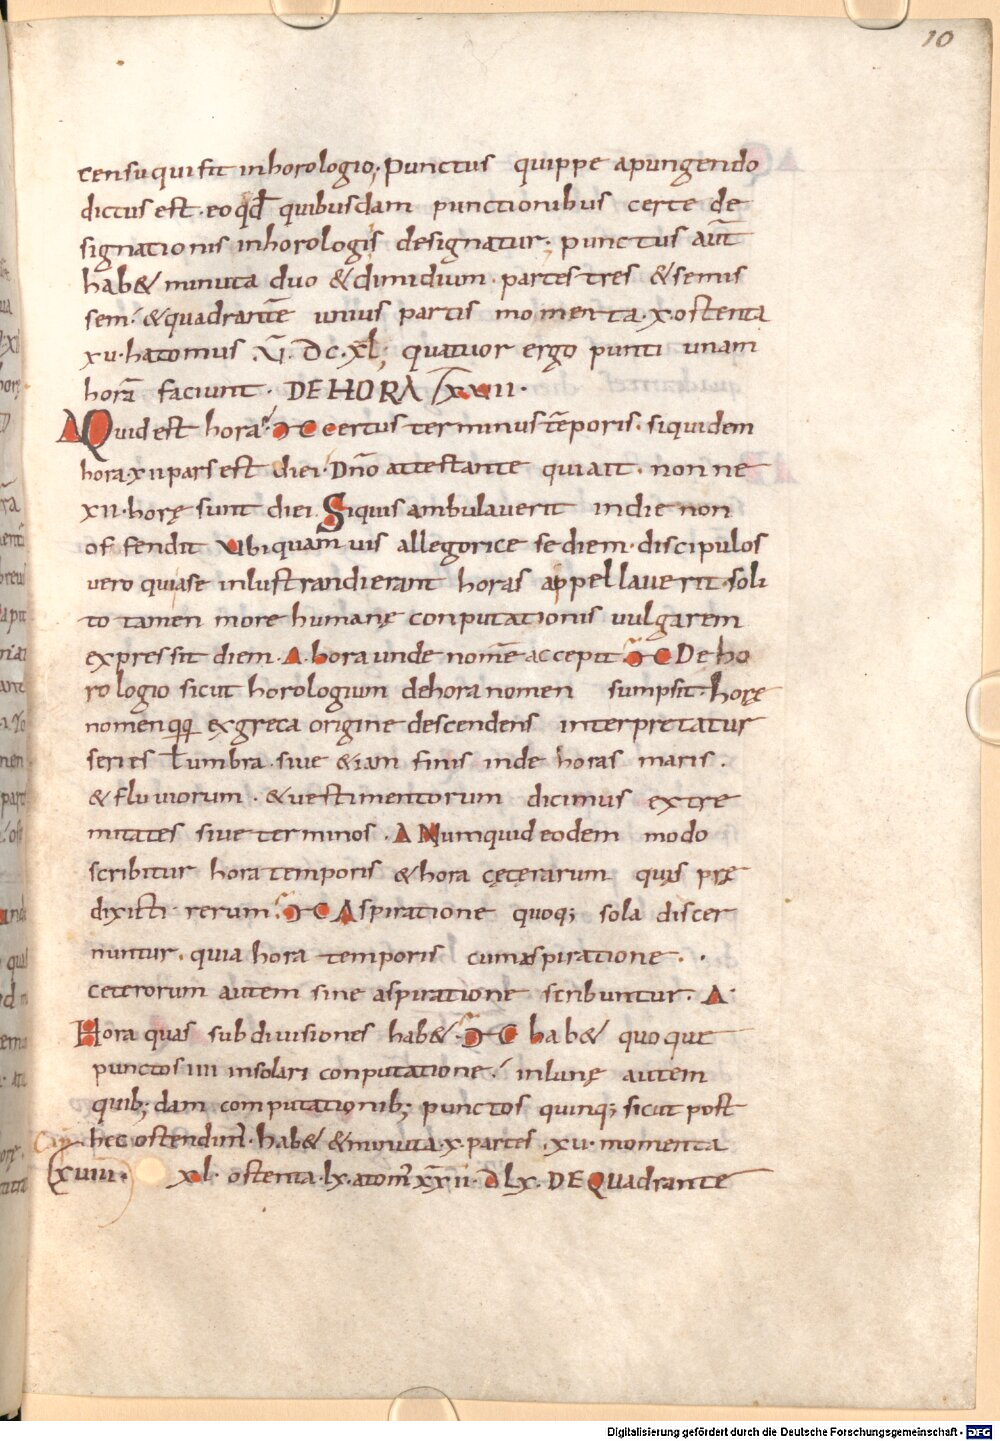 10
censu qui fit in horologio; Punctus quippe apungendo
dictus est. eo qd̄ quibusdam punctionibus certe de
signationis in horologiis designatur. punctus aūt
hab& minuta duo & dimidium. partes tres & semis
sem. & quadrantē unius partis momenta. x. ostenta
xv. hatomus V̄I. DC. xl; quatuor ergo punti unam
horā faciunt. DE HORA xxvii.
A Quid est hora? certus terminus tēporis. siquidem
hora. xii pars est diei. Dn̄o attestante qui ait. nonne
xii. horę sunt diei. Siquis ambulaverit in die non
offendit Ubi quamvis allegorice se diem. discipulos
vero qui a se inlustrandi erant horas appellaverit. soli
to tamen more humanę conputationis vulgarem
expressit diem. A. hora unde nomē accepit. De ho
rologio sicut horologium de hora nomen sumpsit. horę
nomenqq; ex greca origine descendens interpretatur
series ł umbra. sive &iam finis inde horas maris.
& fluviorum. & vestimentorum dicimus extre
mitates sive terminos. A Numquid eodem modo
scribitur hora temporis & hora cęterarum quas prę
dixisti rerum. Aspiratione quoq; sola discer
nuntur. quia hora temporis cum aspiratione. .
ceterorum autem sine aspiratione scribuntur. A.
Hora quas subdivisiones hab&. hab& quoque
punctos iiii in solari conputatione. in lunę autem
quib; dam computationib; punctos quinq; sicut post
hec ostendim̄. hab& & minuta. x. partes. xv. momenta
xviii. xl. ostenta. lx. atom̄ xxii. dlx. DE Quadrante
Digitalisierung gefördert durch die Deutsche Forschungsgemeinschaft - DFG